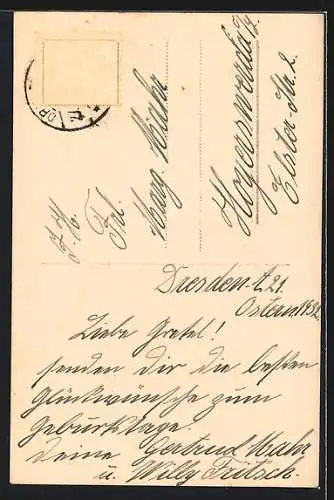 Frl.
Marg. Mahr
Hoyerswerda
Elster-Str. 2.
Dresden A 21.
Ostern 1932.
Liebe Gretel!
senden dir die besten
Glückwünsche zum
Geburtstage.
Deine Gertrud Mahr
u. Willy Frötsch.